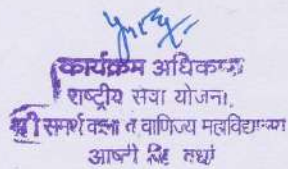 कार्यक्रम अधिकारी
राष्ट्रीय सेवा योजना,
श्री समर्थ कला व वाणिज्य महाविद्यालय
आष्टी